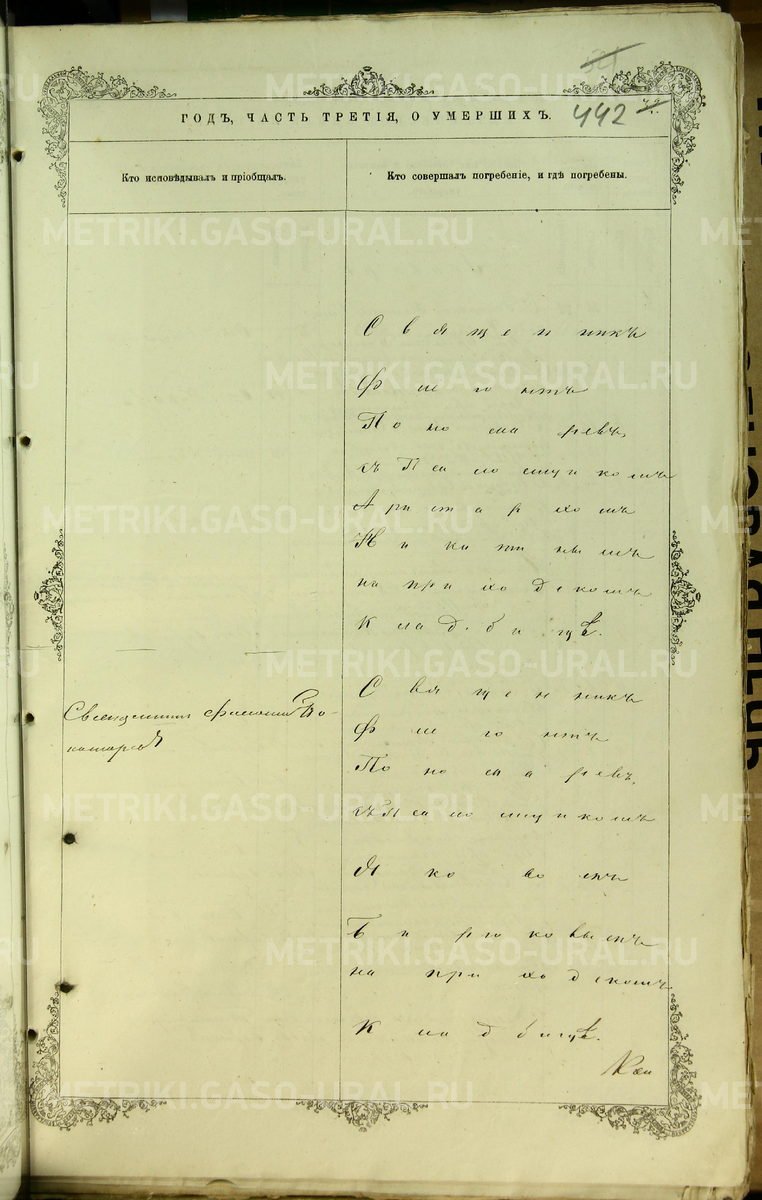 442
ГОДЪ, ЧАСТЬ ТРЕТІЯ, О УМЕРШИХЪ.
Кто исповѣдывалъ и пріобщалъ.
Кто совершалъ погребеніе, и гдѣ погребены.
Священникъ
Филогонтъ
Пономаревъ,
съ Псаломщикомъ
Аристархомъ
Никитинымъ
на приходскомъ
Кладбищѣ.
Священникъ
По-
номаревъ
Священникъ
Филогонтъ
Пономаревъ,
съ Псаломщикомъ
Яковомъ
Бирюковымъ
на приходскомъ
Кладбищѣ.
METRIKI.GASO-URAL.RU